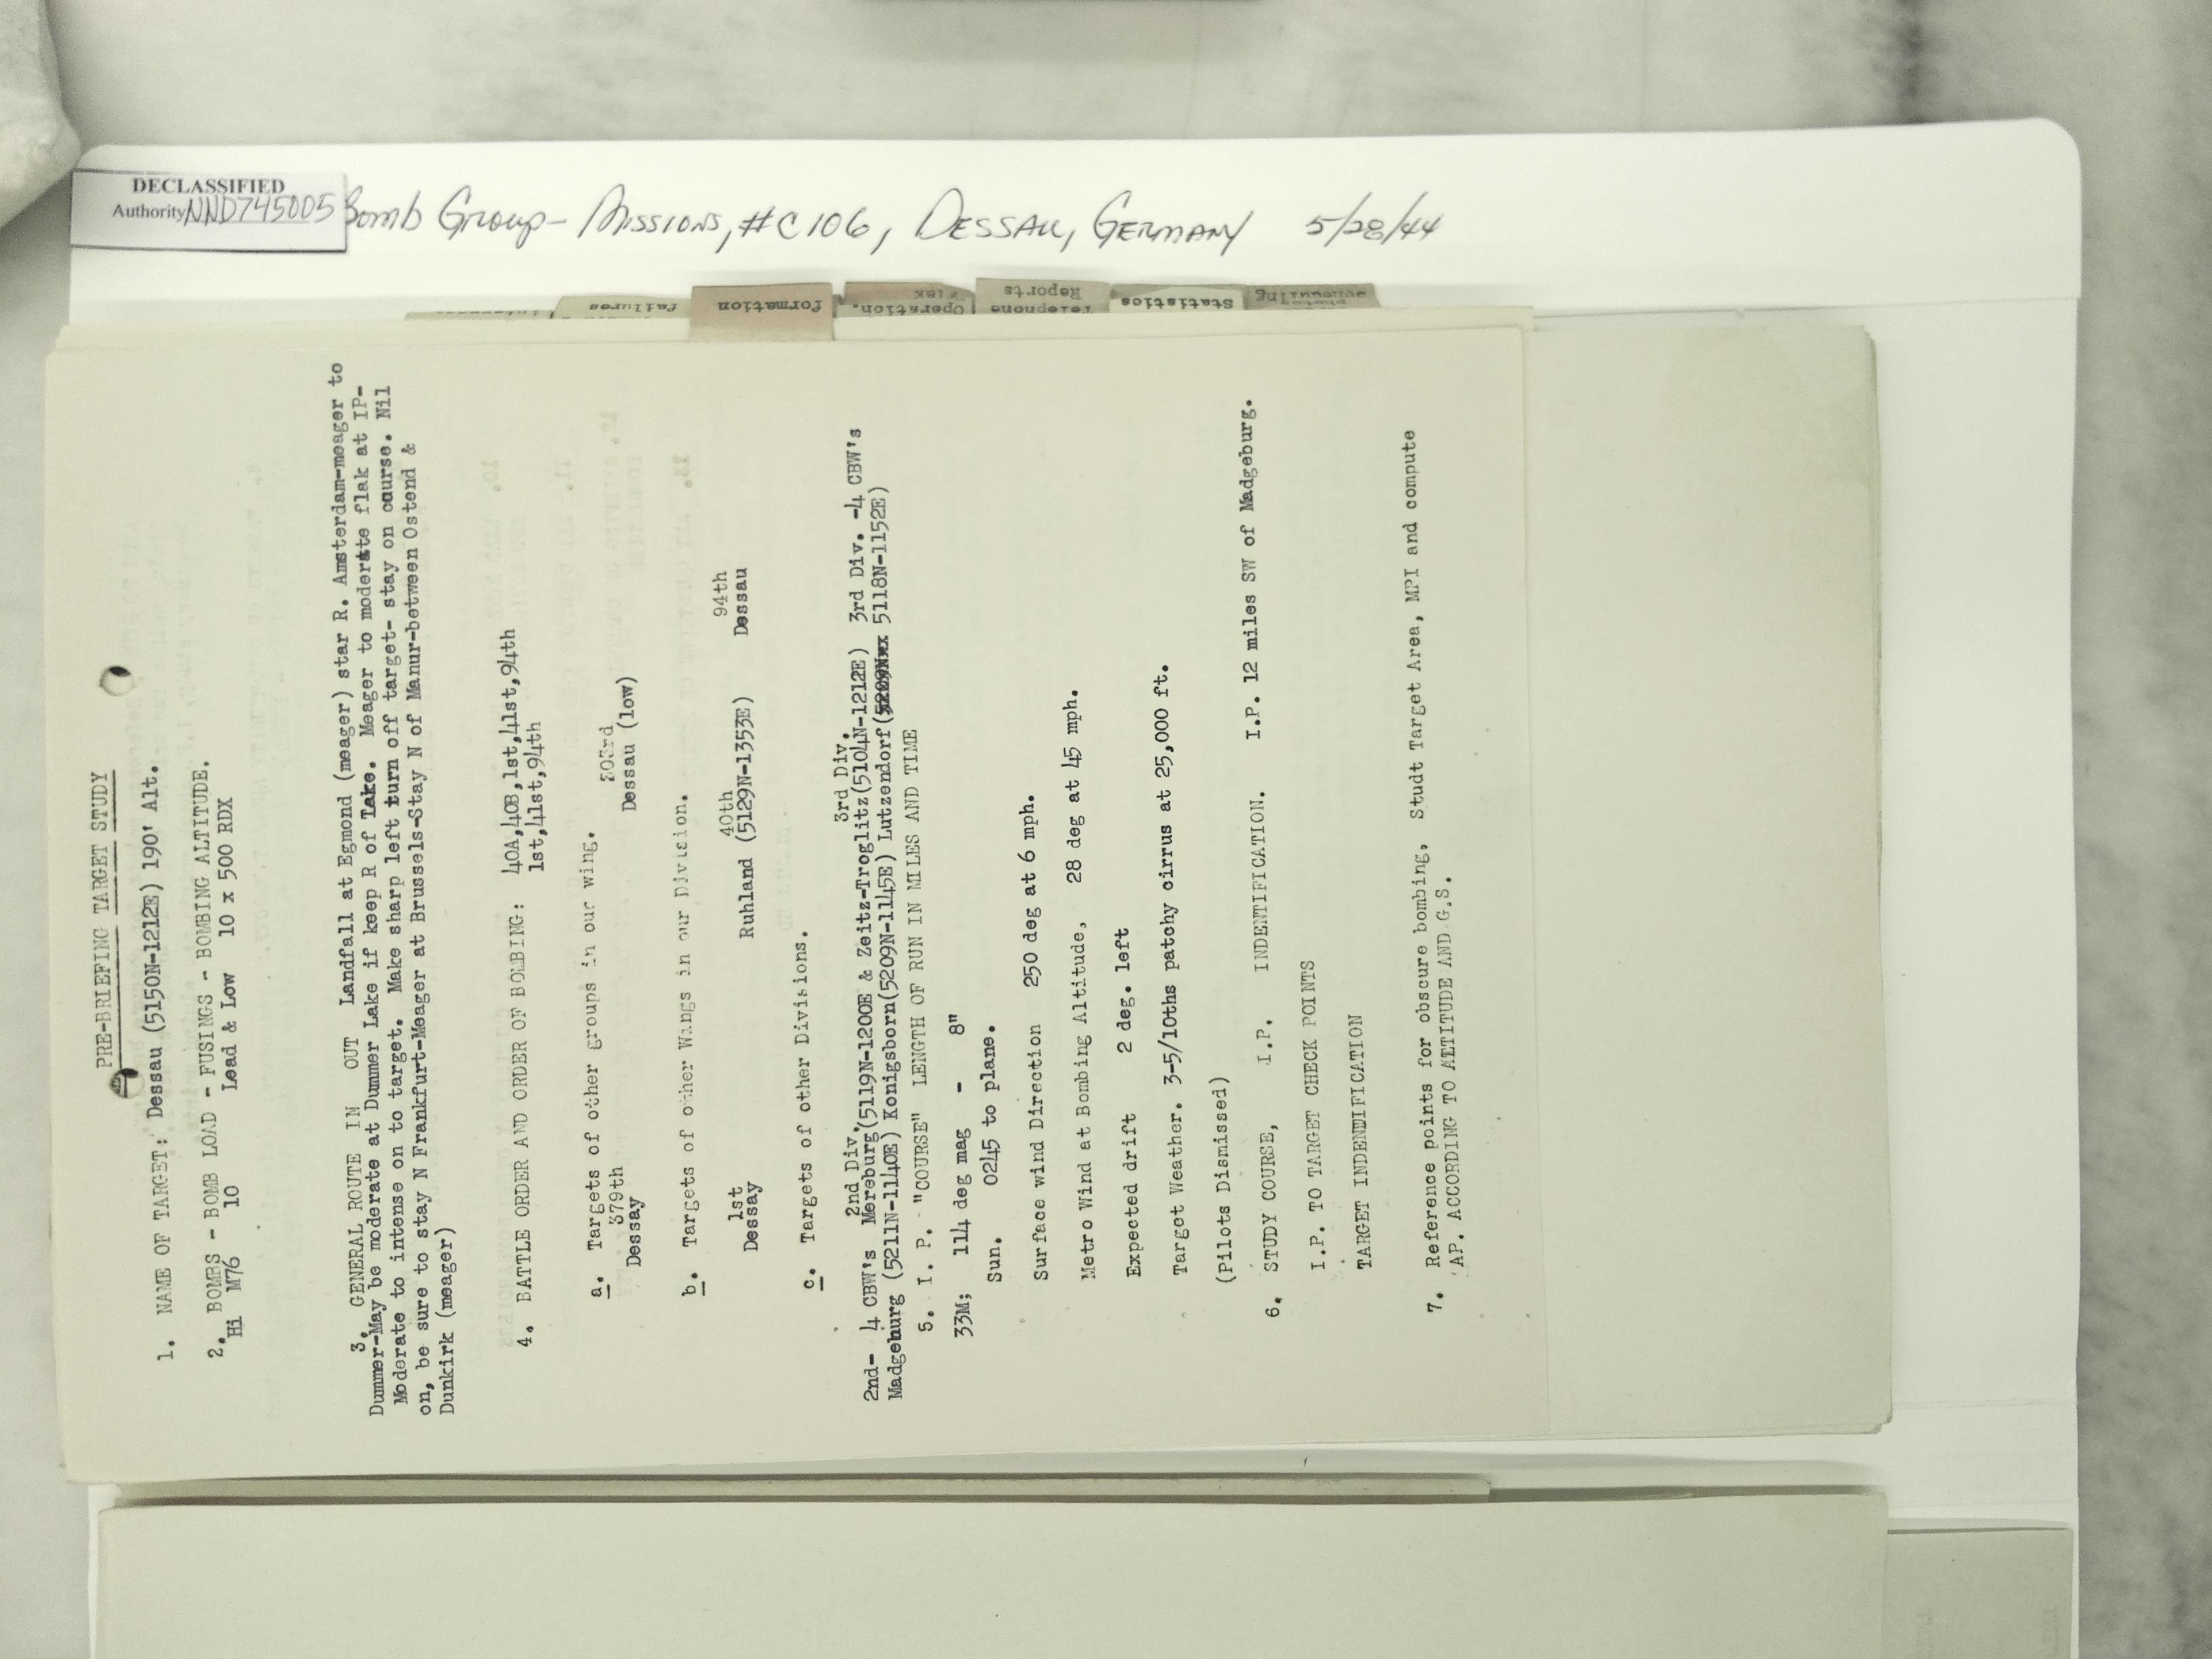 DECLASSIFIED
Authority NND745005
Bomb Group - Missions, #C106, Dessau, Germany 5/28/44
failures
formation
Operation.
Flak
Telephone
Reports
Statistics
PRE-BRIEFING TARGET STUDY
1. NAME OF TARGET: Dessau (5150N-1212E) 190' Alt.
2. BOMBS - BOMB LOAD - FUSINGS - BOMBING ALTITUDE.
Hi M76 10 Lead & Low 10 x 500 RDX
3. GENERAL ROUTE IN OUT Landfall at Egmond (meager) star R. Amsterdam-meager to
Dummer-May be moderate at Dummer Lake if keep R of Lake. Meager to moderate flak at IP-
Moderate to intense on to target. Make sharp left turn off target- stay on course. Nil
on, be sure to stay N Frankfurt-Meager at Brussels-Stay N of Manur-between Ostend &
Dunkirk (meager)
4. BATTLE ORDER AND ORDER OF BOMBING: 40A,40B,1st,41st,94th
1st,41st,94th
a. Targets of other groups in our wing.
379th 303rd
Dessay Dessau (low)
b. Targets of other Wangs in our Division.
1st 40th 94th
Dessay Ruhland (5129N-1353E) Dessau
c. Targets of other Divisions.
2nd Div. 3rd Div.
2nd- 4 CBW's Mereburg(5119N-1200E & Zeitz-Troglitz(5104N-1212E) 3rd Div. -4 CBW's
Madgeburg (5211N-1140E) Konigsborn(5209N-1145E) Lutzendorf( 5118N-1152E)
5. I. P. "COURSE" LENGTH OF RUN IN MILES AND TIME
33M; 114 deg mag - 8"
Sun. 0245 to plane.
Surface wind Direction 250 deg at 6 mph.
Metro Wind at Bombing Altitude, 28 deg at 45 mph.
Expected drift 2 deg. left
Target Weather. 3-5/10ths patchy cirrus at 25,000 ft.
(Pilots Dismissed)
6. STUDY COURSE, I.P. INDENTIFICATION. I.P. 12 miles SW of Madgeburg.
I.P. TO TARGET CHECK POINTS
TARGET INDENDIFICATION
7. Reference points for obscure bombing, Studt Target Area, MPI and compute
AP. ACCORDING TO AETITUDE AND G.S.